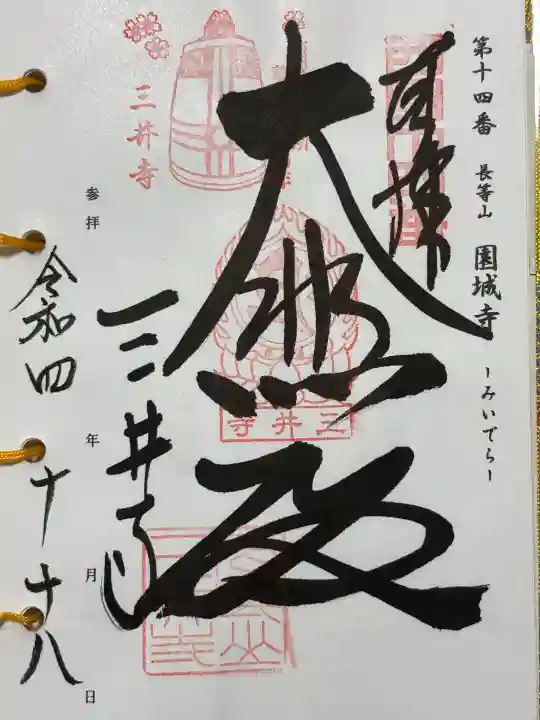 第十四番 長等山 園城寺 ーみいでらー
奉拝
大悲殿
三井寺
三井寺
三井寺
参拝 令和四年十月十八日